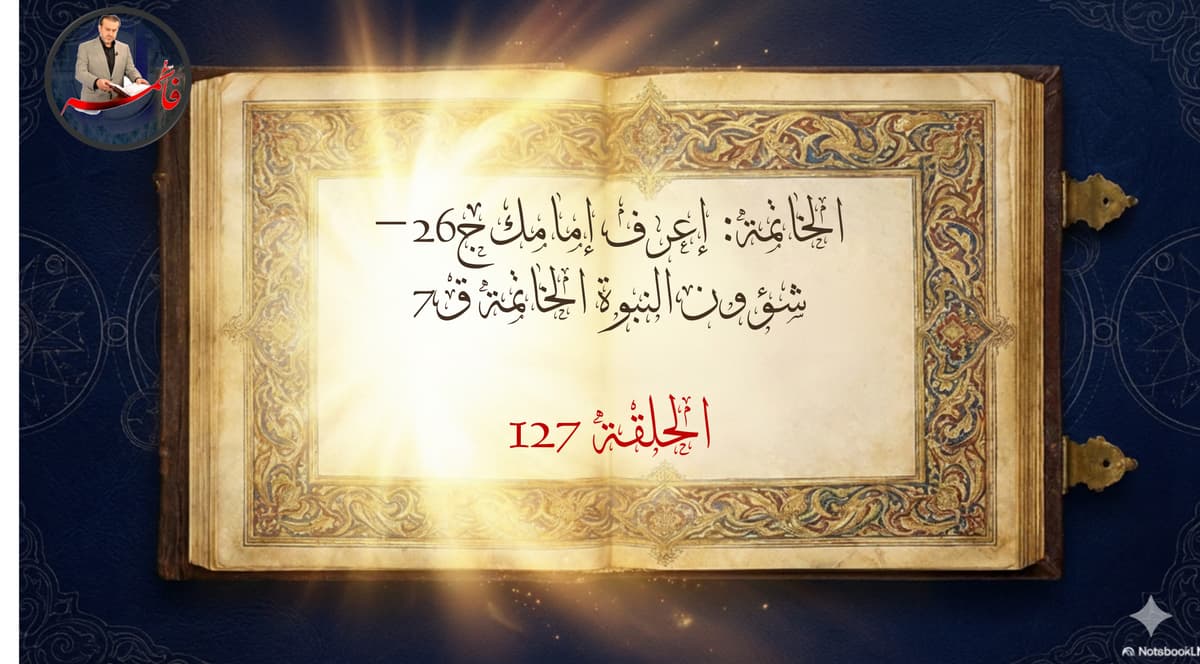 فاطمة
الخاتمة: إعرف إمامك ج26 –
شؤون النبوة الخاتمة ق7
الحلقة 127
NotsbookLM